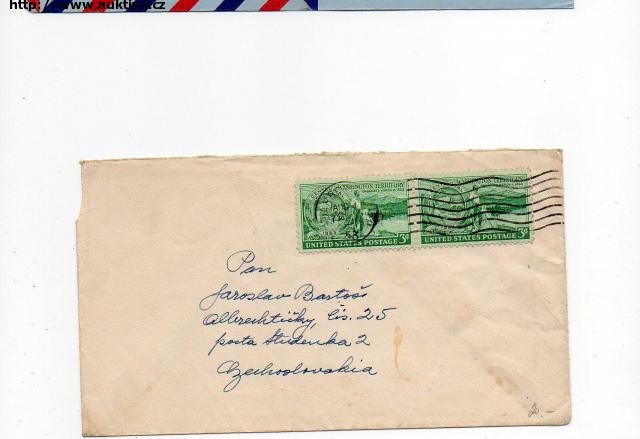 http://www.auktivo.cz
WASHINGTON TERRITORY WASHINGTON TERRITORY
UNITED STATES POSTAGE 3¢ UNITED STATES POSTAGE 3¢
Pan
Jaroslav Bartoš
Albrechtičky, čís. 25
posta Studenka 2
Czechoslovakia
20.-